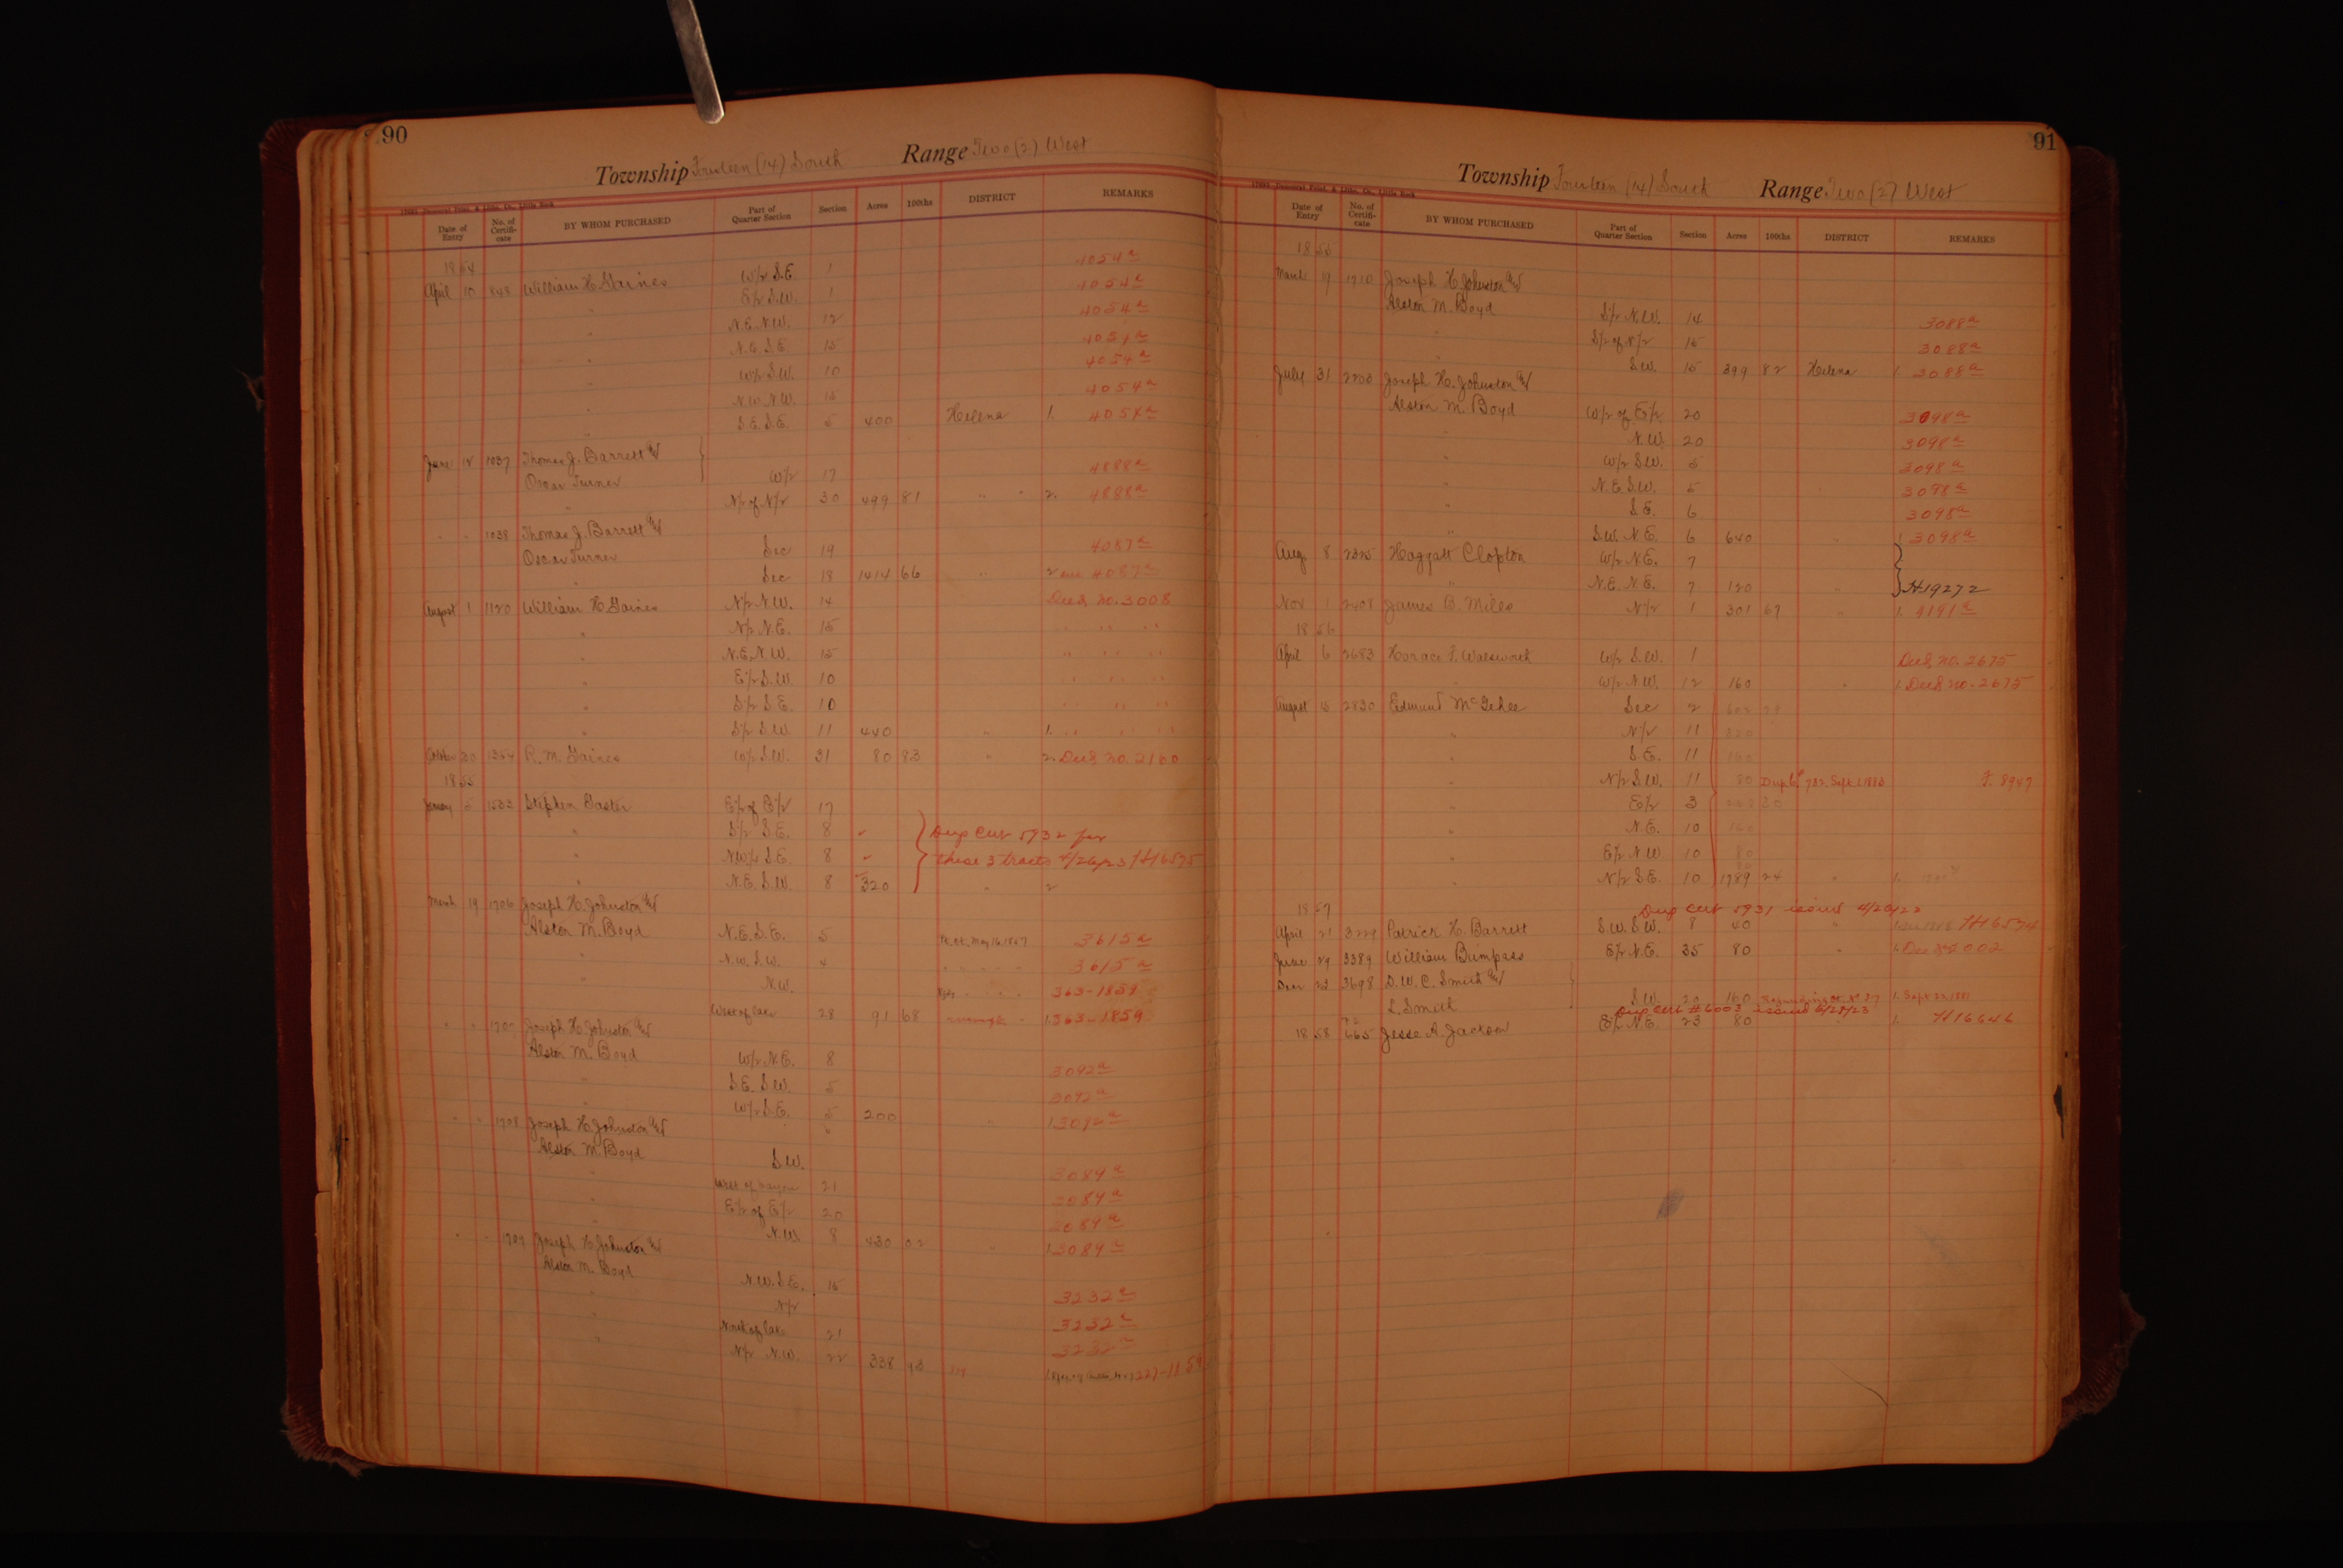 90
Township Fourteen (14) South Range Two (2) West
Date of Entry No. of Certifi-cate BY WHOM PURCHASED Part of Quarter Section Section Acres 100ths DISTRICT REMARKS
1854
April 10 848 William H. Gaines W/2 S.E. 1 4054a
" E/2 S.W. 1 4054a
" N.E. N.W. 12 4054a
" N.E. S.E. 15 4054a
" W/2 S.W. 10 4054a
" N.W. N.W. 15 4054a
" S.E. S.E. 5 400 Helena 1. 4054a
June 12 1037 Thomas J. Barrett and
Oscar Turner W/2 17 4888a
" N/2 of N/2 30 499 81 " " 2. 4888a
" " 1038 Thomas J. Barrett and
Oscar Turner Sec 19 4087a
" Sec 18 1414 66 " 2 4087a
August 1 1120 William H. Gaines N/2 N.W. 14 Deed no. 3008
" N/2 N.E. 15 " " "
" N.E. N.W. 15 " " "
" E/2 S.W. 10 " " "
" S/2 S.E. 10 " " "
" S/2 S.W. 11 440 " 1. " " "
October 30 1354 R. M. Gaines W/2 S.W. 31 80 83 " 2. Deed no. 2160
1855
January 5 1533 Stephen Gaster E/2 of E/2 17
" S/2 S.E. 8 Dup Cert 5932 for
" NW/4 S.E. 8 these 3 tracts 4/26/23 H16575
" N.E. S.W. 8 320 " 2
March 19 1706 Joseph H. Johnston and
Alston M. Boyd N.E. S.E. 5 May 16, 1867 3615a
" N.W. S.W. 4 " " " " 3615a
" N.W. 363-1859
West of lake 28 91 68 1. 363-1859
" " 1707 Joseph H. Johnston and
Alston M. Boyd W/2 N.E. 8 3092a
" S.E. S.W. 5 3092a
" W/2 S.E. 5 200 " 1. 3092a
" " 1708 Joseph H. Johnston and
Alston M. Boyd S.W. 3089a
" West of bayou 21 3089a
" E/2 of E/2 20 3089a
" N.W. 8 430 02 " 1. 3089a
" " 1709 Joseph H. Johnston and
Alston M. Boyd N.W. S.E. 15 3232a
" N/2 3232a
" North of lake 21 3232a
" N/2 N.W. 22 338 43
91
Township Fourteen (14) South Range Two (2) West
Date of Entry No. of Certifi-cate BY WHOM PURCHASED Part of Quarter Section Section Acres 100ths DISTRICT REMARKS
1855
March 19 1710 Joseph H. Johnston and
Alston M. Boyd S/2 N.W. 14 3088a
" S/2 of N/2 15 3088a
" S.W. 15 399 82 Helena 1. 3088a
July 31 2203 Joseph H. Johnston and
Alston M. Boyd W/2 of E/2 20 3098a
" N.W. 20 3098a
" W/2 S.W. 5 3098a
" N.E. S.W. 5 3098a
" S.E. 6 3098a
" S.W. N.E. 6 640 " 1. 3098a
Aug. 8 2325 Haggatt Clopton W/2 N.E. 7
" N.E. N.E. 7 120 " H19272
Nov 1 2408 James B. Miles N/2 1 301 67 " 1. 4191a
1856
April 6 2683 Horace F. Walsworth W/2 S.W. 1 Deed no. 2675
" W/2 N.W. 12 160 " 1. Deed no. 2675
August 15 2830 Edmund McGehee Sec 2
" N/2 11 320
" S.E. 11 160
" N/2 S.W. 11 80 Dup Ct 732. Sept. 1, 1883 F. 8947
" E/2 3
" N.E. 10 160
" E/2 N.W. 10 80
" N/2 S.E. 10 1789 24 " 1.
1857 Dup Cert 5931 issued 4/26/23
April 21 3229 Patrick H. Barrett S.W. S.W. 8 40 " H16574
June 29 3389 William Bumpass E/2 N.E. 35 80 "
Decr 23 3698 D. W. C. Smith and
L. Smith S.W. 20 160 1. Sept 22 1881
Dup Cert #6003 issued 6/28/23
1858 665 Jesse A. Jackson E/2 N.E. 23 80 " 1. H16646